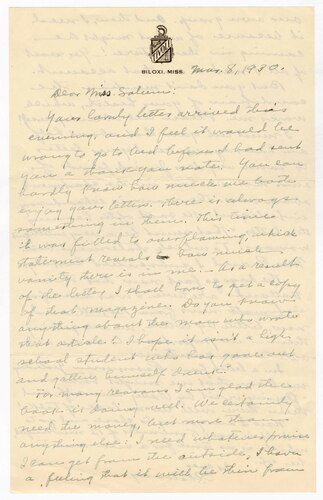 BILOXI, MISS.
Mar. 8, 1930.
Dear Miss Salum:
Your lovely letter arrived this
evening, and I feel it would be
wrong to go to bed before I had sent
you a thank you note. You can
hardly know how much we both
enjoy your letters. There is always
something in them. This time
it was filled to overflowing, which
statement reveals how much
vanity there is in me. As a result
of the letter, I shall have to get a copy
of that magazine. Do you know
anything about the man who wrote
that article? I hope it isn't a high
school student who has gone out
and gotten himself drunk.
For many reasons I am glad the
book is doing well. We certainly
need the money, but more than
anything else I need whatever praise
I can get from the outside. I have
a feeling that it will be them from